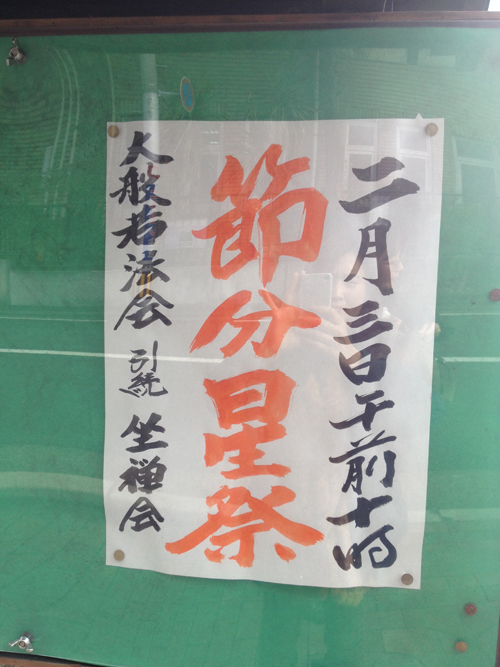 二月三日午前十時
節分星祭
大般若法会 引続 坐禅会